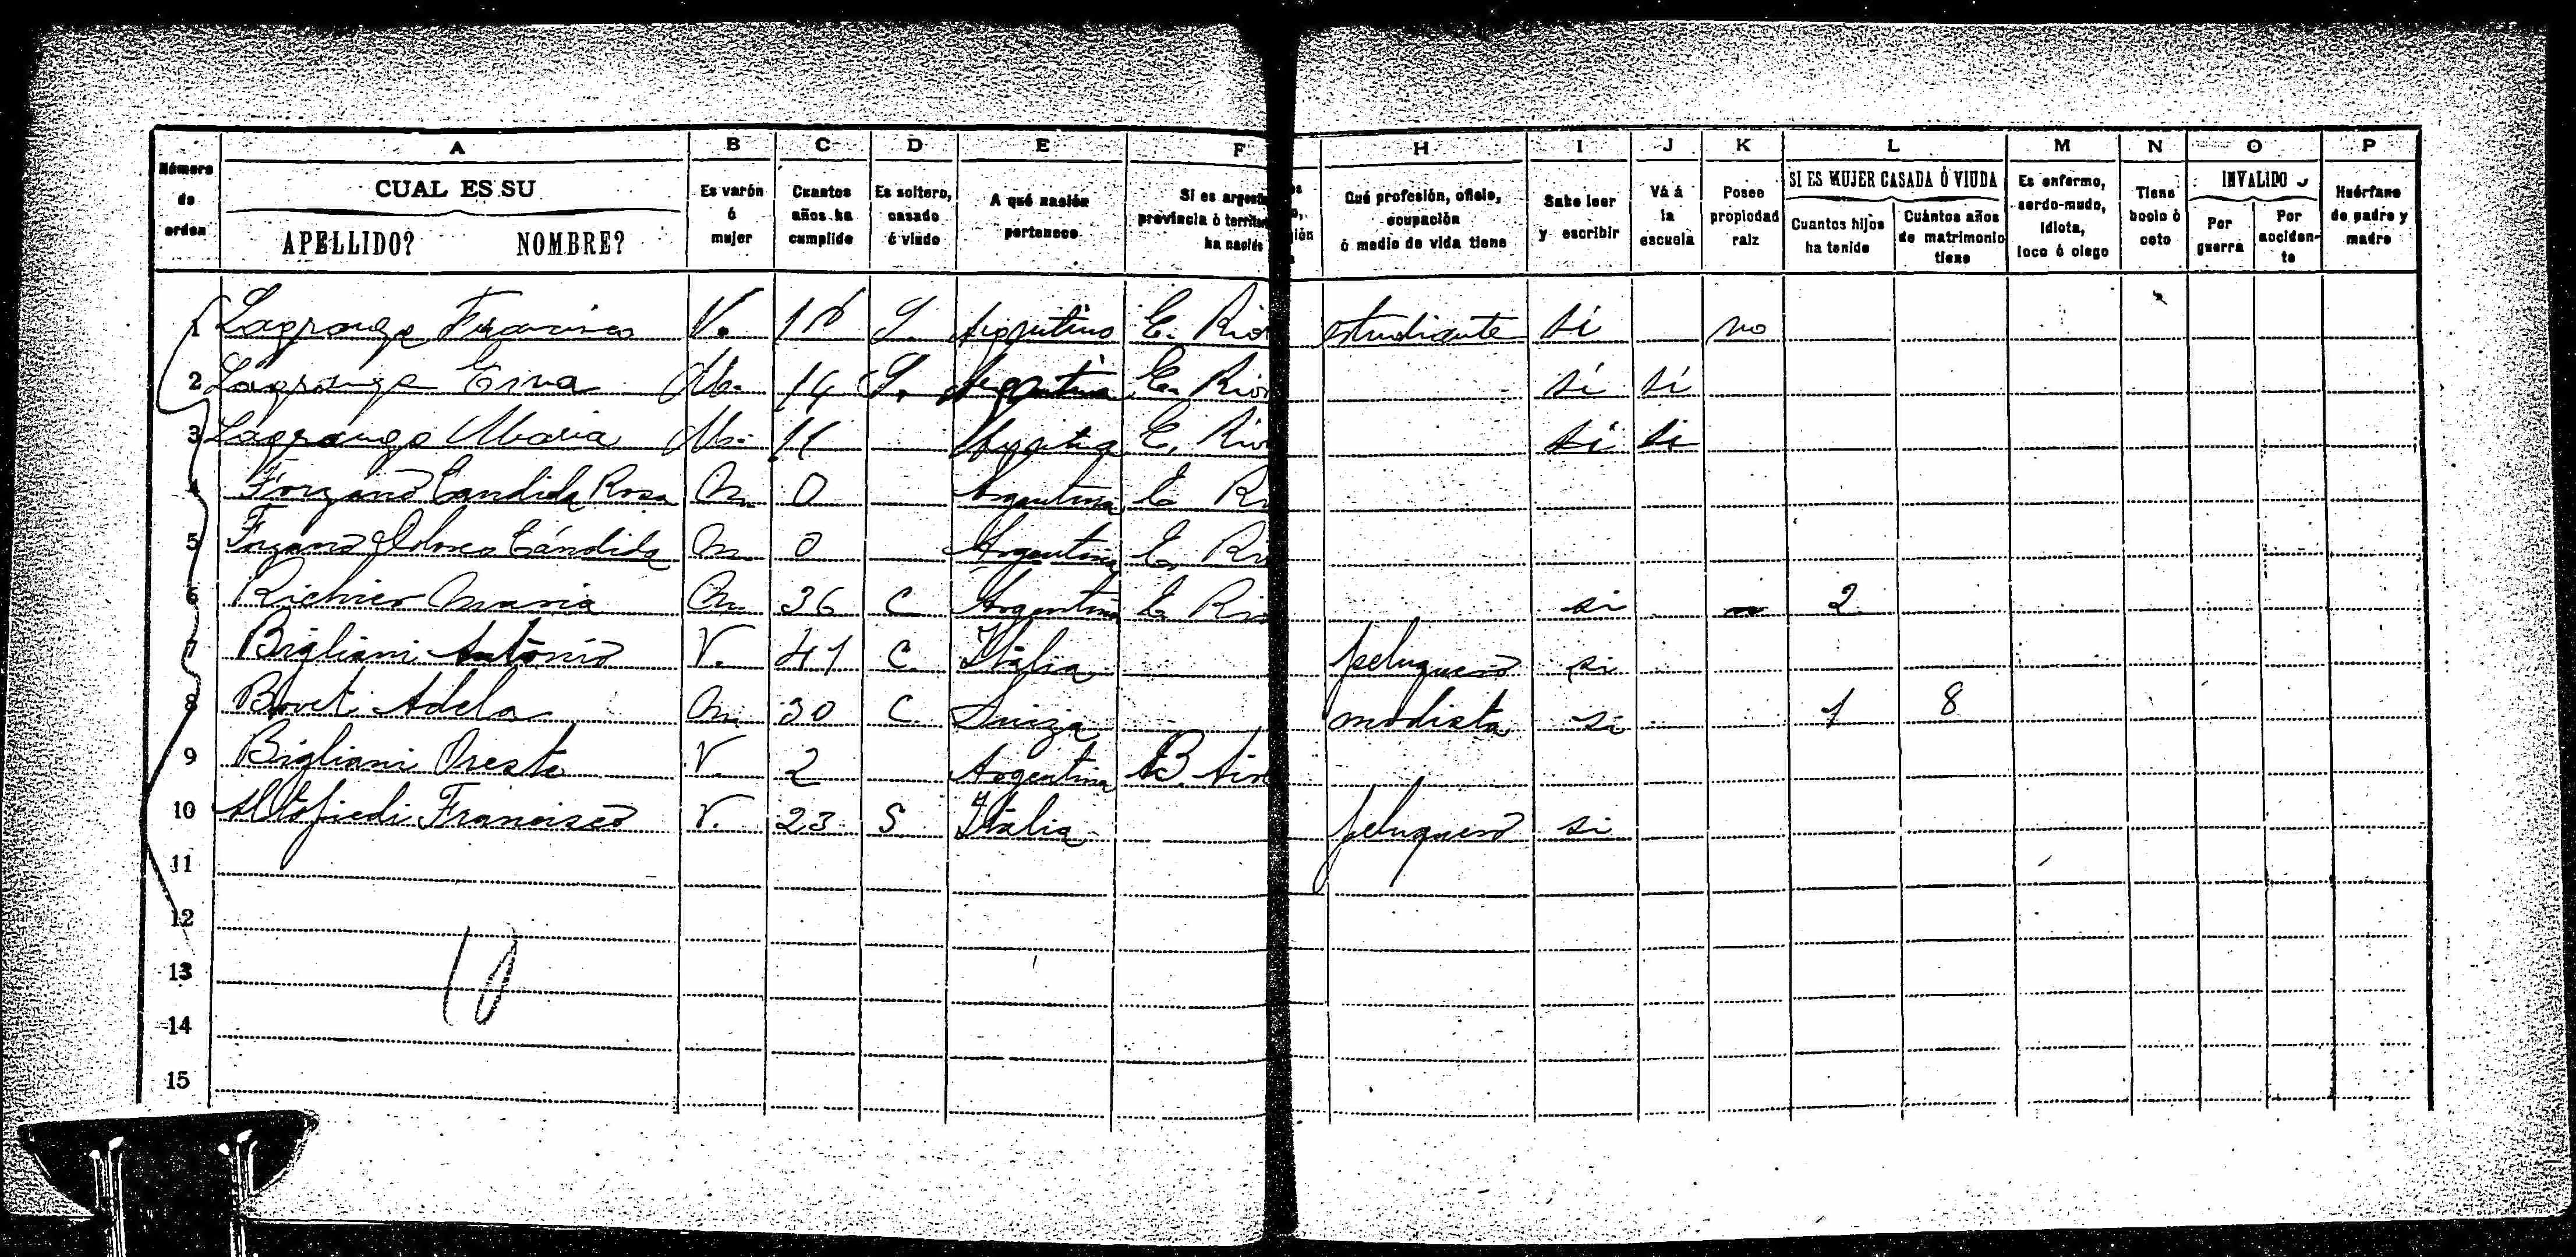 A B C D E F H I J K L M N O P
Número de orden CUAL ES SU APELLIDO? NOMBRE? Es varón ó mujer Cuantos años ha cumplido Es soltero, casado ó viudo A qué nación pertenece Si es argenti provincia ó territor ha nacido Qué profesión, oficio, ocupación ó medio de vida tiene Sabe leer y escribir Vá á la escuela Posee propiedad raiz SI ES MUJER CASADA Ó VIUDA Cuantos hijos ha tenido Cuántos años de matrimonio tiene Es enfermo, sordo-mudo, idiota, loco ó ciego Tiene bocio ó coto INVALIDO Por guerra Por acciden-te Huérfano de padre y madre
1 Lagrange Francisco V. S. Argentino E. Rios estudiante si no
2 Lagrange M. 14 S. Argentina E. Rios si si
3 Lagrange Maria M. 11 Argentina E. Rio si si
4 Forzano Candida Rosa M 0 Argentina E Ri
5 Forzano Dolores Cándida M 0 Argentina E. Ri
6 Richier Maria M. 36 C Argentina E. Rio si 2
7 Bigliani Antonio V. 41 C. Italia peluquero si
8 Bovet Adela M. 30 C. Suiza modista si 1 8
9 Bigliani Oreste V. 2 Argentina B. Aire
10 Francisco V. 23 S Italia peluquero si
11
12
13
14
15
10